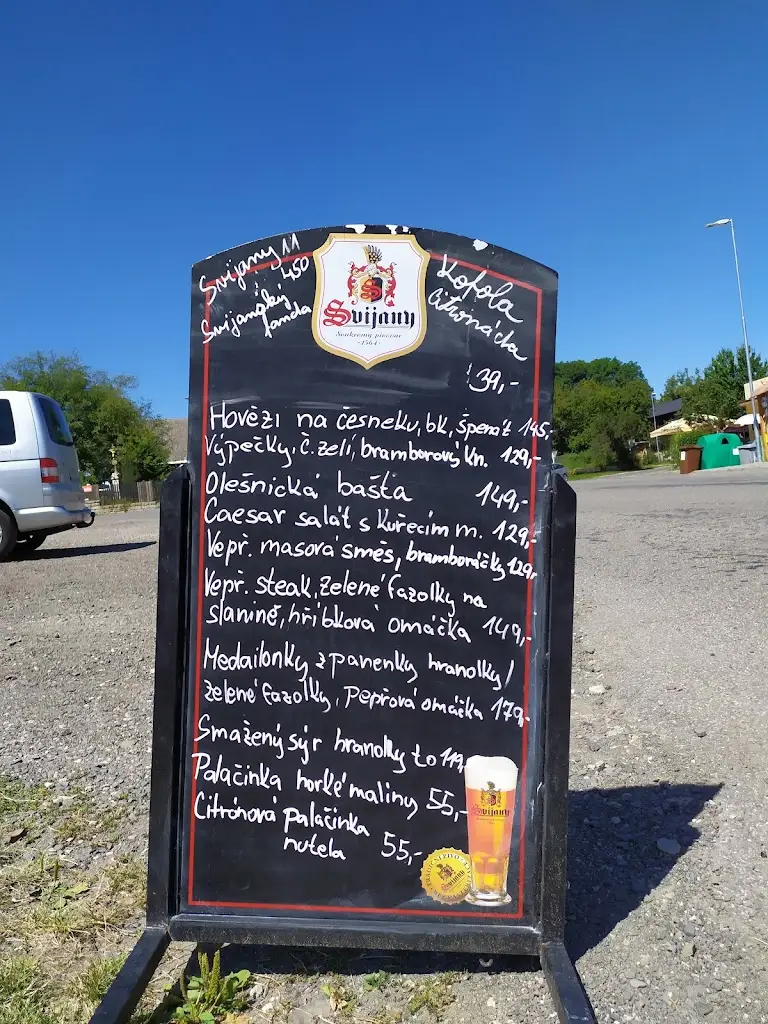 Svijany 11
450
Svijanský
fanda
Svijany
Soukromý pivovar
·1564·
Kofola
Citronáda
39,-
Hovězí na česneku, bk, špenát 145,-
Výpečky, č. zelí, bramborový kn. 129,-
Olešnická bašta 149,-
Caesar salát s kuřecím m. 129,-
Vepř. masová směs, bramboráčky 129,-
Vepř. steak, zelené fazolky na
slanině, hříbková omáčka 149,-
Medailonky z panenky hranolky/
zelené fazolky, pepřová omáčka 179,-
Smažený sýr hranolky to 119,-
Palačinka horké maliny 55,-
Citrónová palačinka
nutela 55,-
Svijany